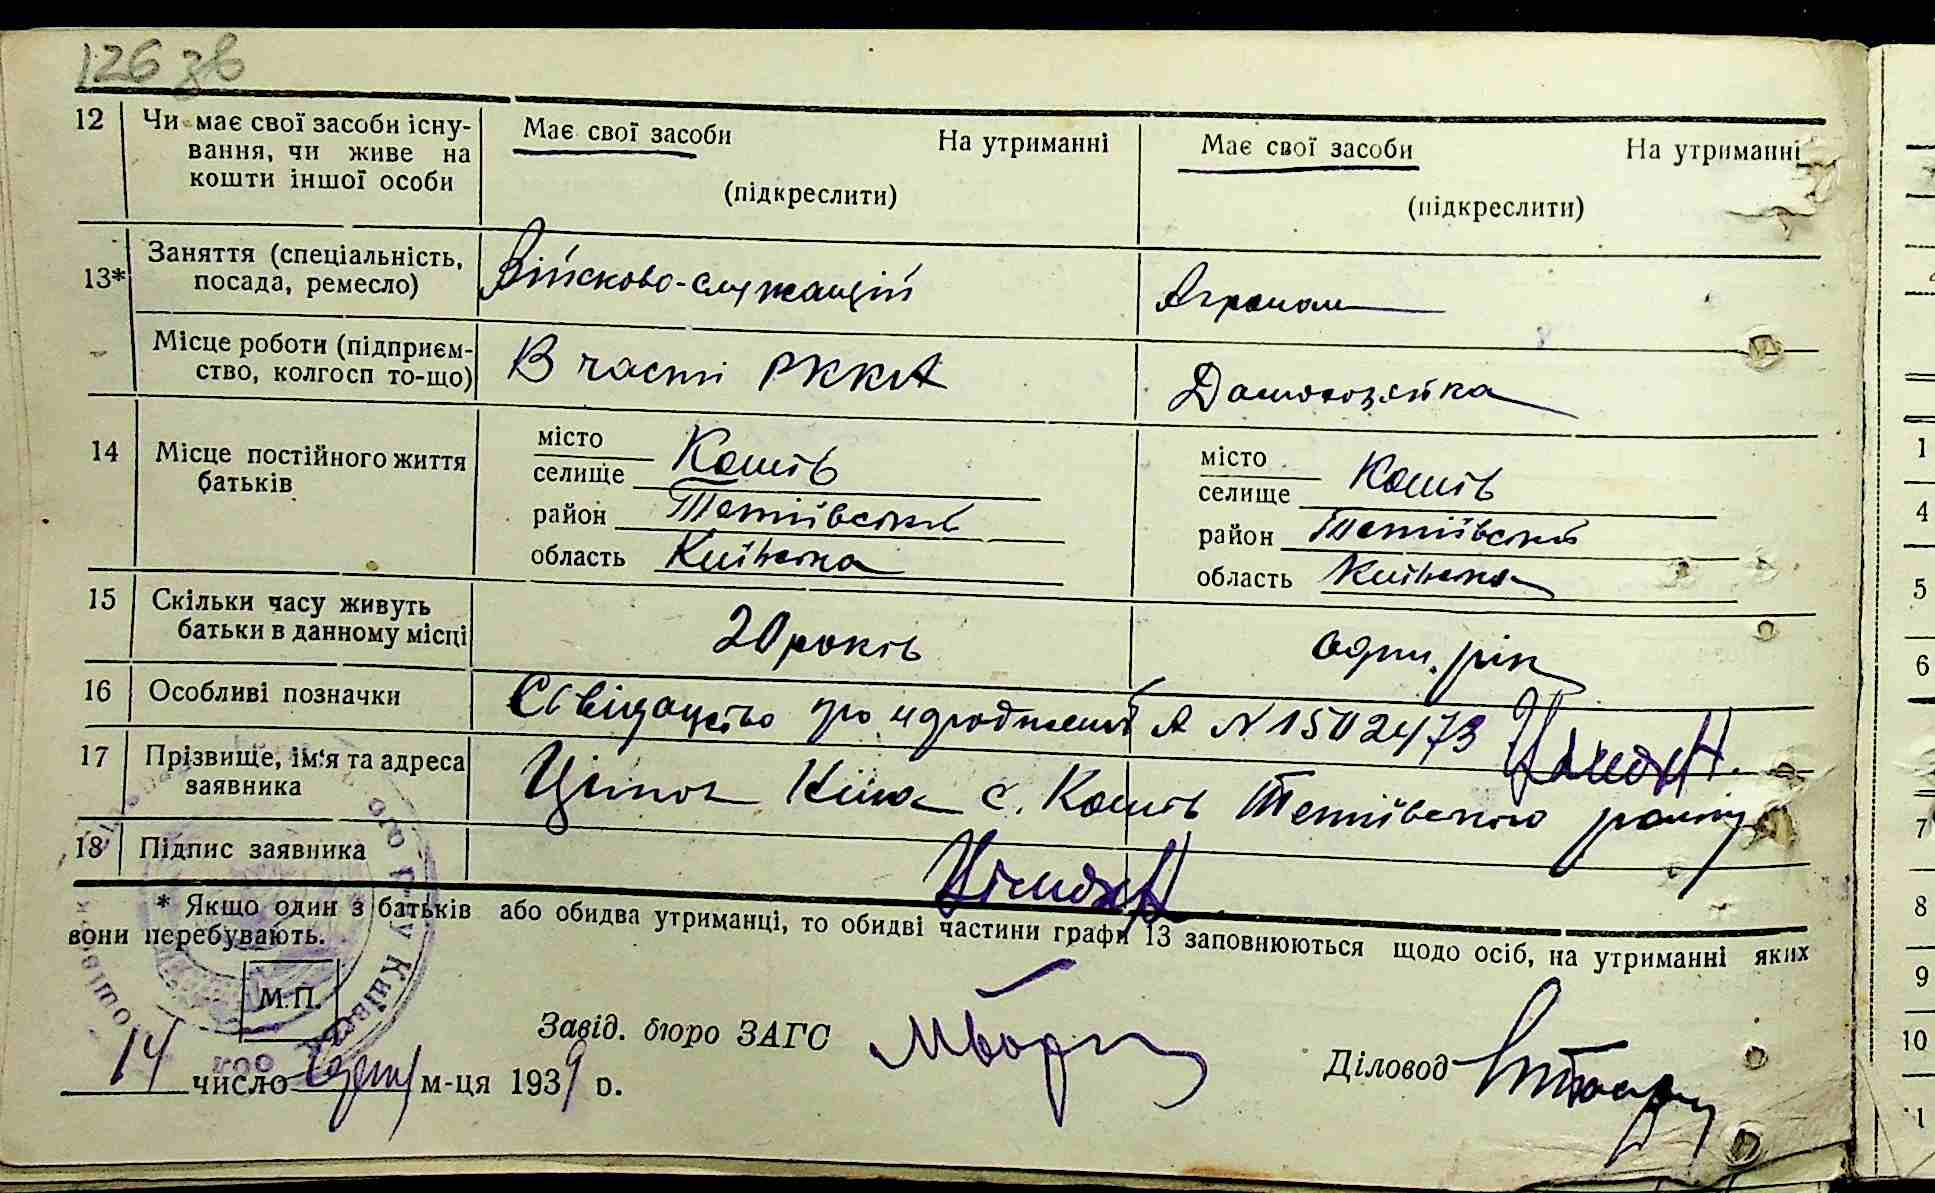 126 зв
12 Чи має свої засоби існу-
вання, чи живе на
кошти іншої особи
Має свої засоби На утриманні
(підкреслити)
Має свої засоби На утриманні
(підкреслити)
13* Заняття (спеціальність,
посада, ремесло)
Військово-служащій
Агроном
Місце роботи (підприєм-
ство, колгосп то-що)
В часті РККА
Домохозяйка
14 Місце постійного життя
батьків
місто
селище Кошів
район Тетіївський
область Київська
місто
селище Кошів
район Тетіївський
область Київська
15 Скільки часу живуть
батьки в данному місці
20 років
один рік
16 Особливі позначки
Свідоцтво про народження А N 1502473
17 Прізвище, ім'я та адреса
заявника
с. Кошів Тетіївського району
18 Підпис заявника
* Якщо один з батьків або обидва утриманці, то обидві частини графи 13 заповнюються щодо осіб, на утриманні яких
вони перебувають.
М.П.
Завід. бюро ЗАГС
Діловод
14 число м-ця 1939 р.
1
4
5
6
7
8
9
10
1